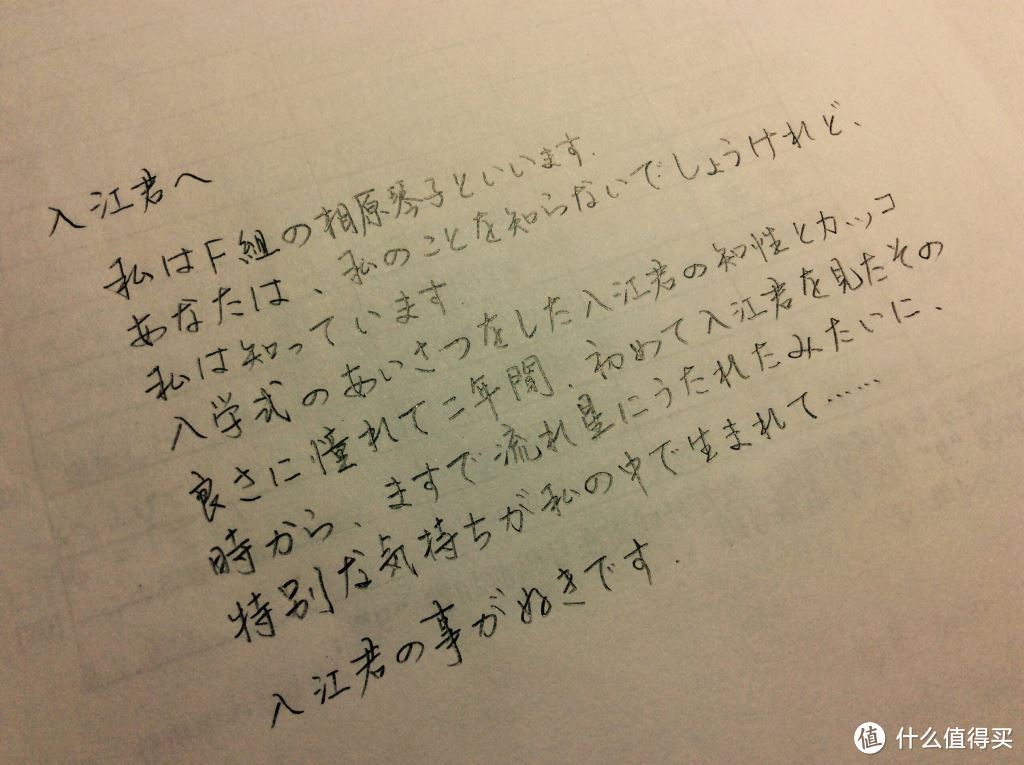 入江君へ
私はF組の相原琴子といいます.
あなたは、私のことを知らないでしょうけれど、
私は知っています.
入学式のあいさつをした入江君の知性とカッコ
良さに憧れて二年間.初めて入江君を見たその
時から、ますで流れ星にうたれたみたいに、
特別な気持ちが私の中で生まれて……
入江君の事が好きです.
值 什么值得买